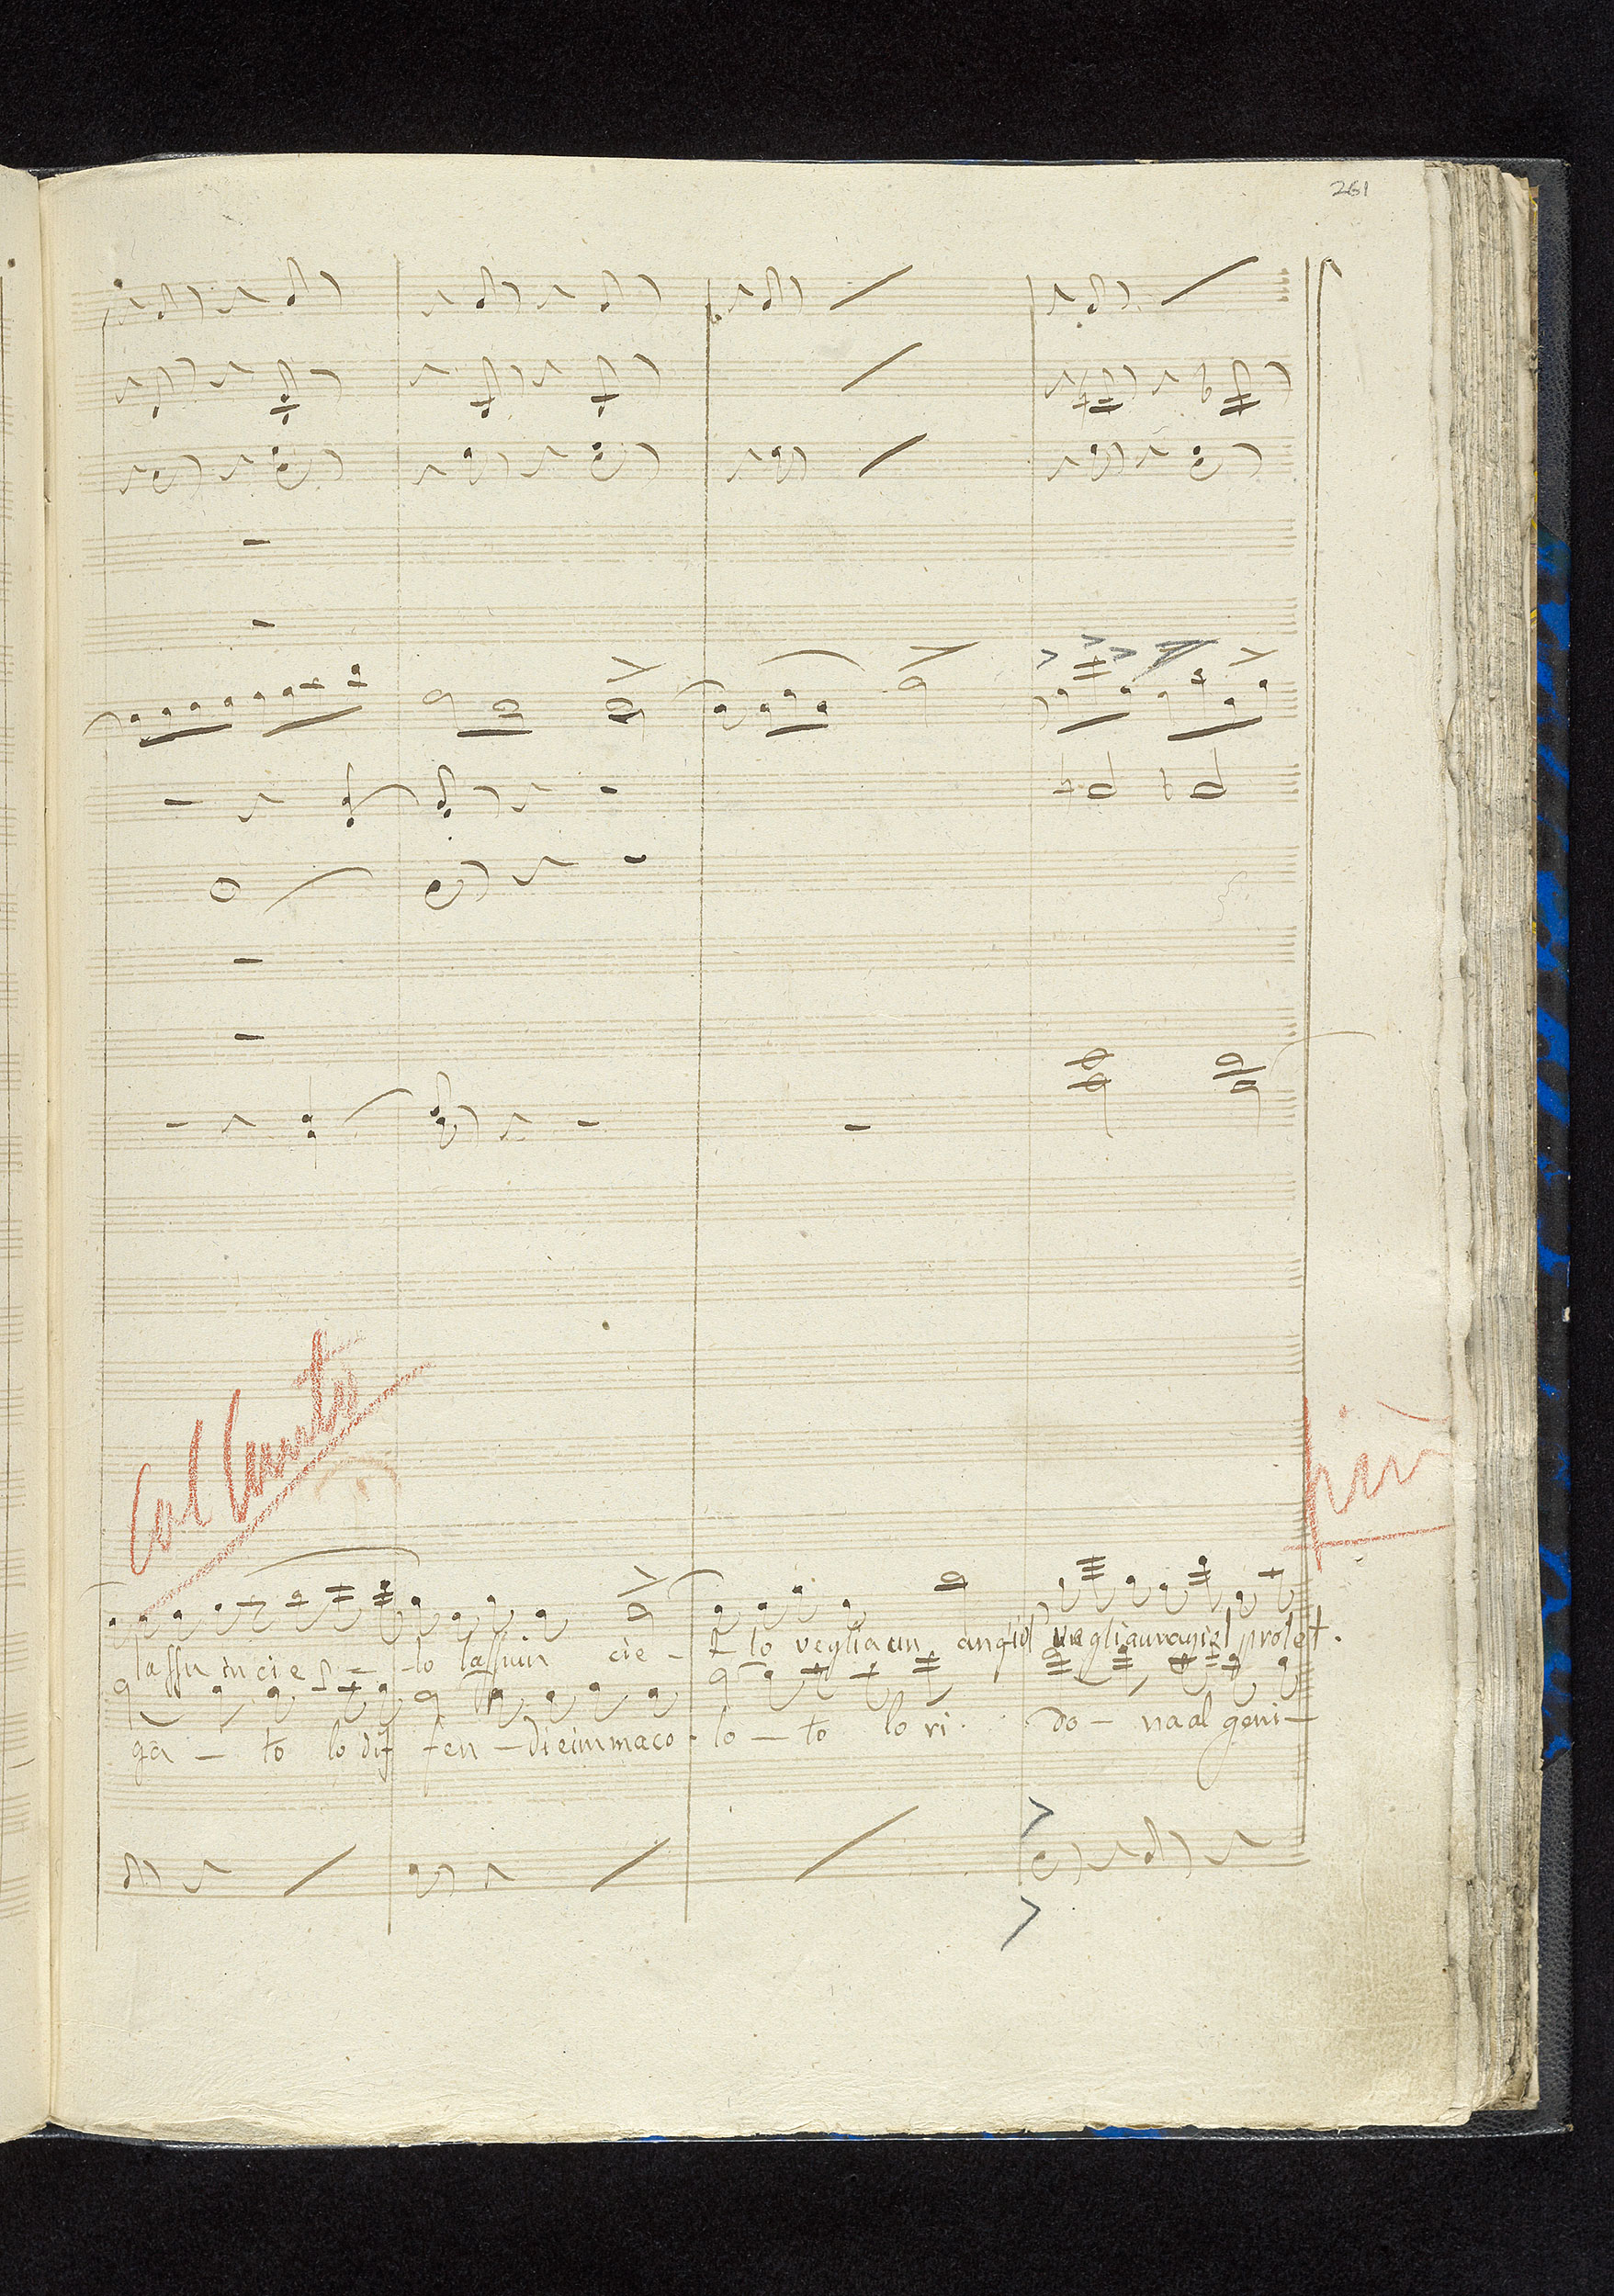 261
Col Canto
più
lassu in cie - - lo lassuin cie - lo veglia un angiol veglia un angiol protet.
ga - to lo dif fen - die immaco - lo - to lo ri do - na al geni -